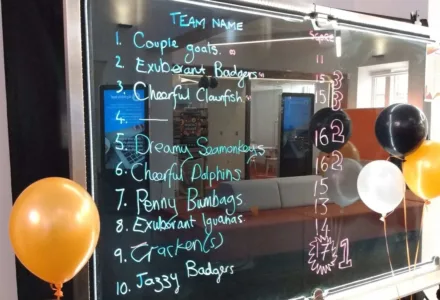 TEAM NAME Score
1. Couple goals. 11
2. Exuberant Badgers 15 3
3. Cheerful Clownfish 15 3
4. —
5. Dreamy Seamonkeys 16 2
6. Cheerful Dolphins 16 2
7. Penny Bumbags 15
8. Exuberant Iguanas. 13
9. Cracken(s) 14
10. Jazzy Badgers 17 1